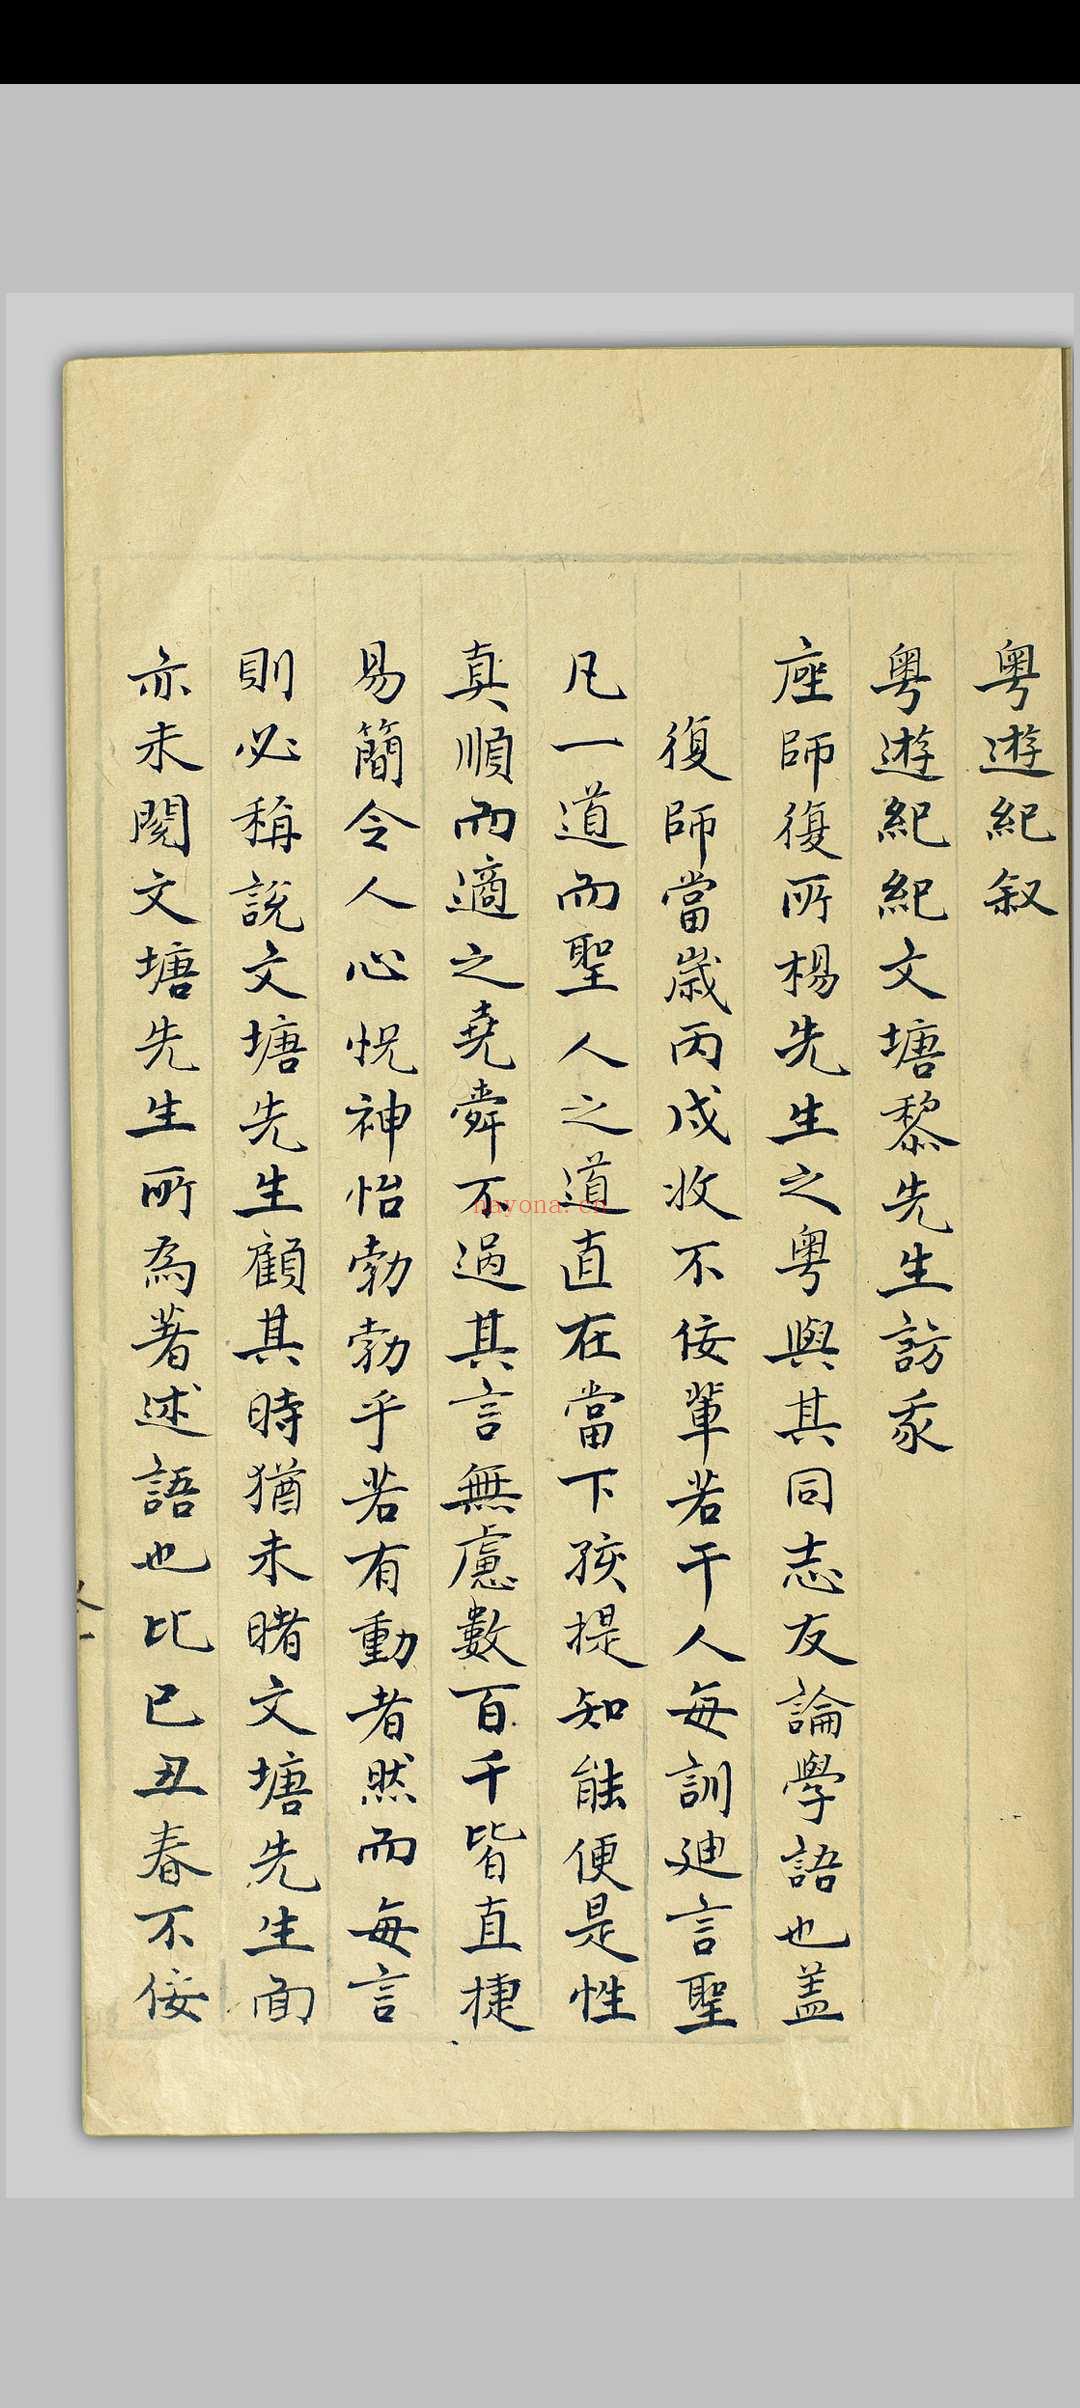 粵遊紀叙
粵遊紀紀文塘黎先生訪我
座師復所楊先生之粵與其同志友論學語也盖
復師當歲丙戌收不佞輩若干人每訓廸言聖
凡一道而聖人之道直在當下孩提知能便是性
真順而適之堯舜不過其言無慮數百千皆直捷
易簡令人心怳神怡勃勃乎若有動者然而每言
則必稱說文塘先生顧其時猶未睹文塘先生面
亦未閱文塘先生所為著述語也比已丑春不佞
nayona.cn